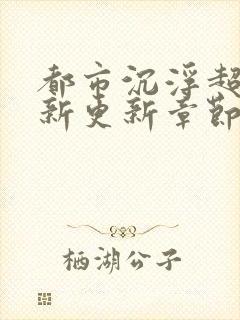 都市沉浮超
新更新章节
栖湖公子